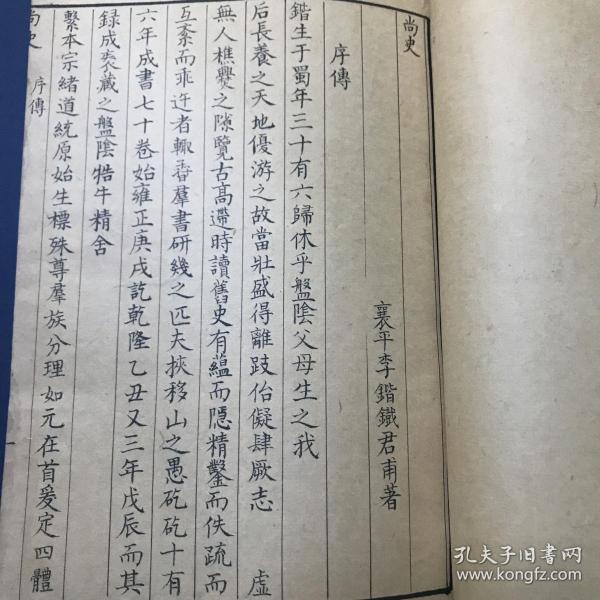 尚史
襄平李鍇鐵君甫著
序傳
鍇生于蜀年三十有六歸休乎盤陰父母生之我
后長養之天地優游之故當壯盛得離跂佁儗肆厥志 虛
無人樵爨之隙覽古高遰時讀舊史有蘊而隱精鑿而佚疏而
互紊而乖迕者輒番羣書研幾之匹夫挾移山之愚矻矻十有
六年成書七十卷始雍正庚戌訖乾隆乙丑又三年戊辰而其
録成裘藏之盤陰牿牛精舍
繫本宗緒道統原始生標殊尊羣族分理如元在首爰定四體
尚史 序傳
孔夫子旧书网
www.kongfz.com